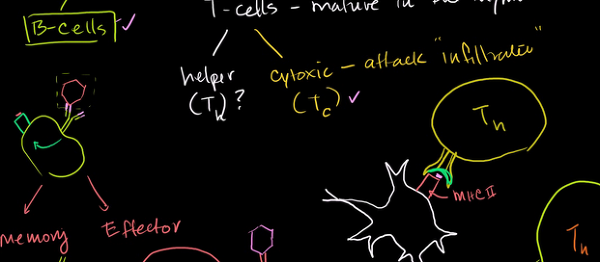 T-cells - mature in the
B-cells
helper
(Th)?
cytoxic - attack "infiltrated"
(Tc)
Th
MHC II
Memory
Effector
Th